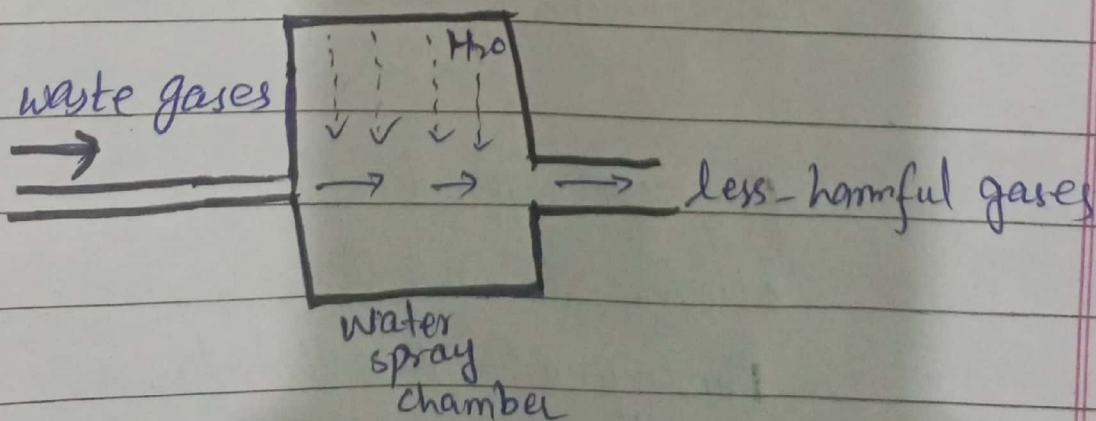 H2O
waste gases
less-harmful gases
water
spray
chamber